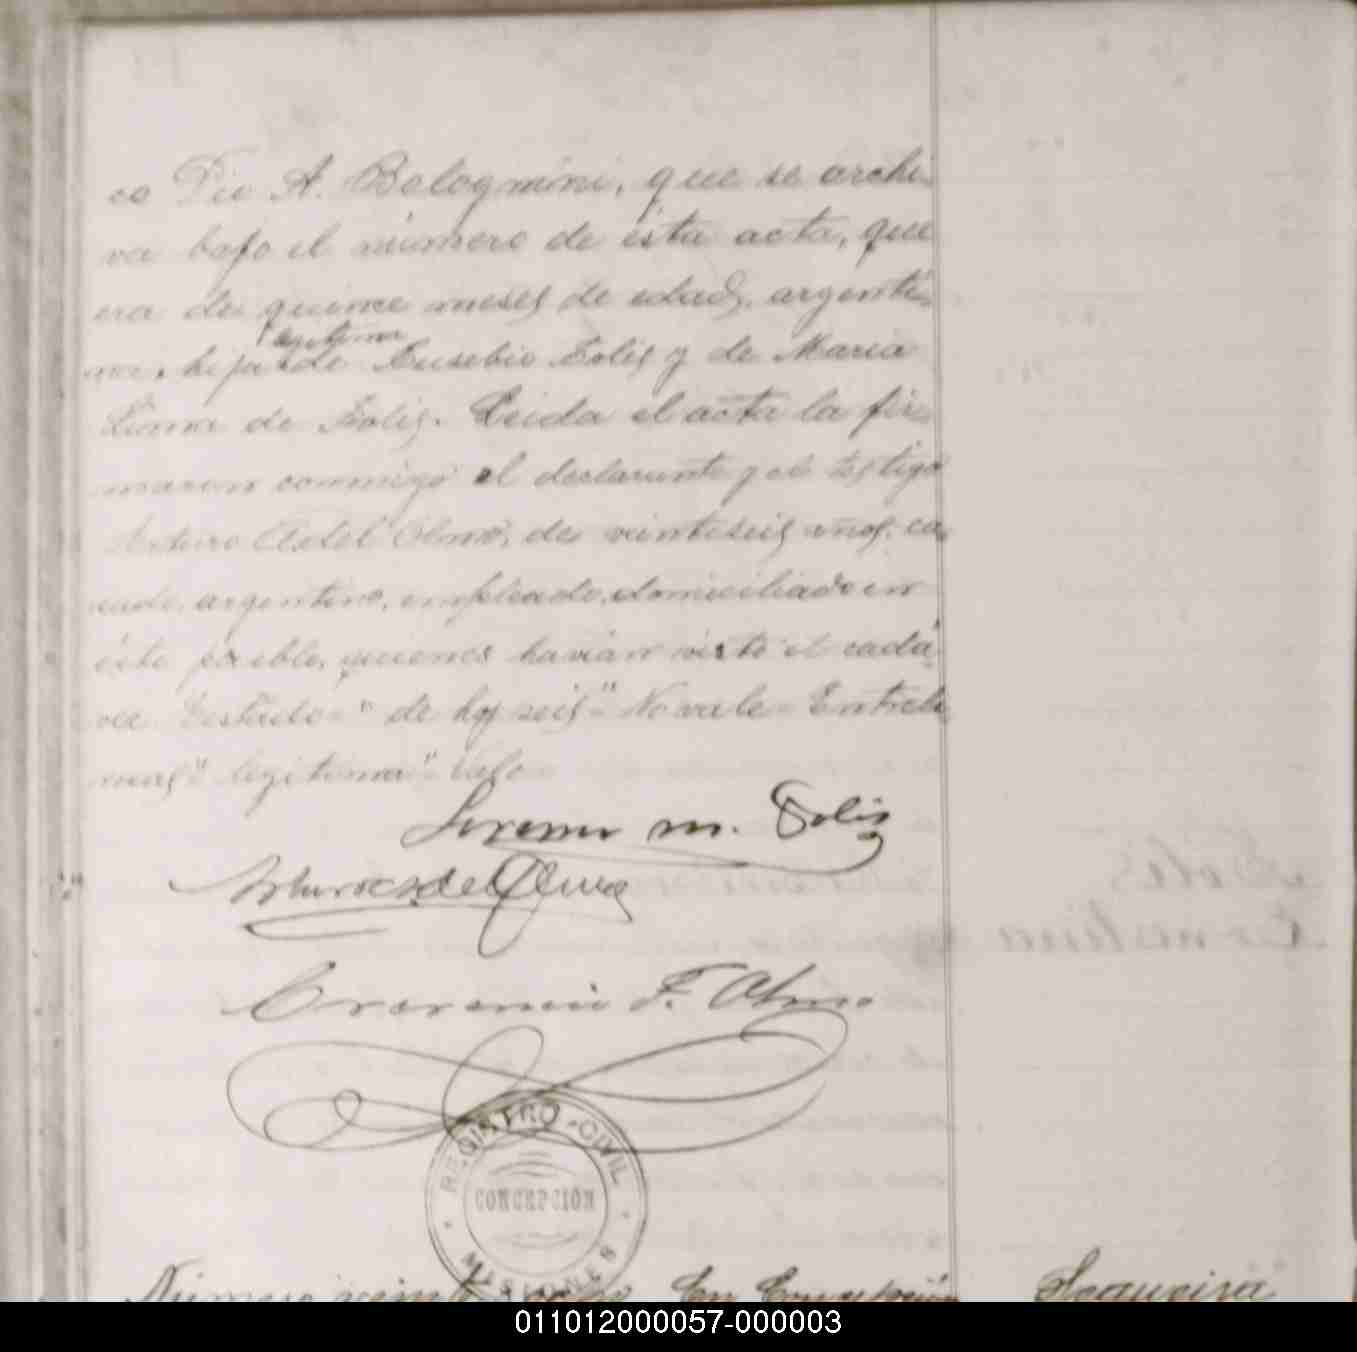 co Pio A. Bolognini, que se archi-
va bajo el número de ésta acta, que
era de quince meses de edad, argenti-
legitima
na, hija de Eusebio Solis y de Maria
Lima de Solis. Leida el acta la fir-
maron conmigo el declarante y el testigo
Arturo A. del Olmo, de veintiseis años, ca-
sado, argentino, empleado, domiciliado en
éste pueblo, quienes havian visto el cadá-
ver Testado-" de hoy seis"- No vale- Entreli-
neas" legitima" Vale-
m. Solis
Solis
F. Olmo
REGISTRO CIVIL
CONCEPCIÓN
MISIONES
Número En Concepción
Sequeira
011012000057-000003